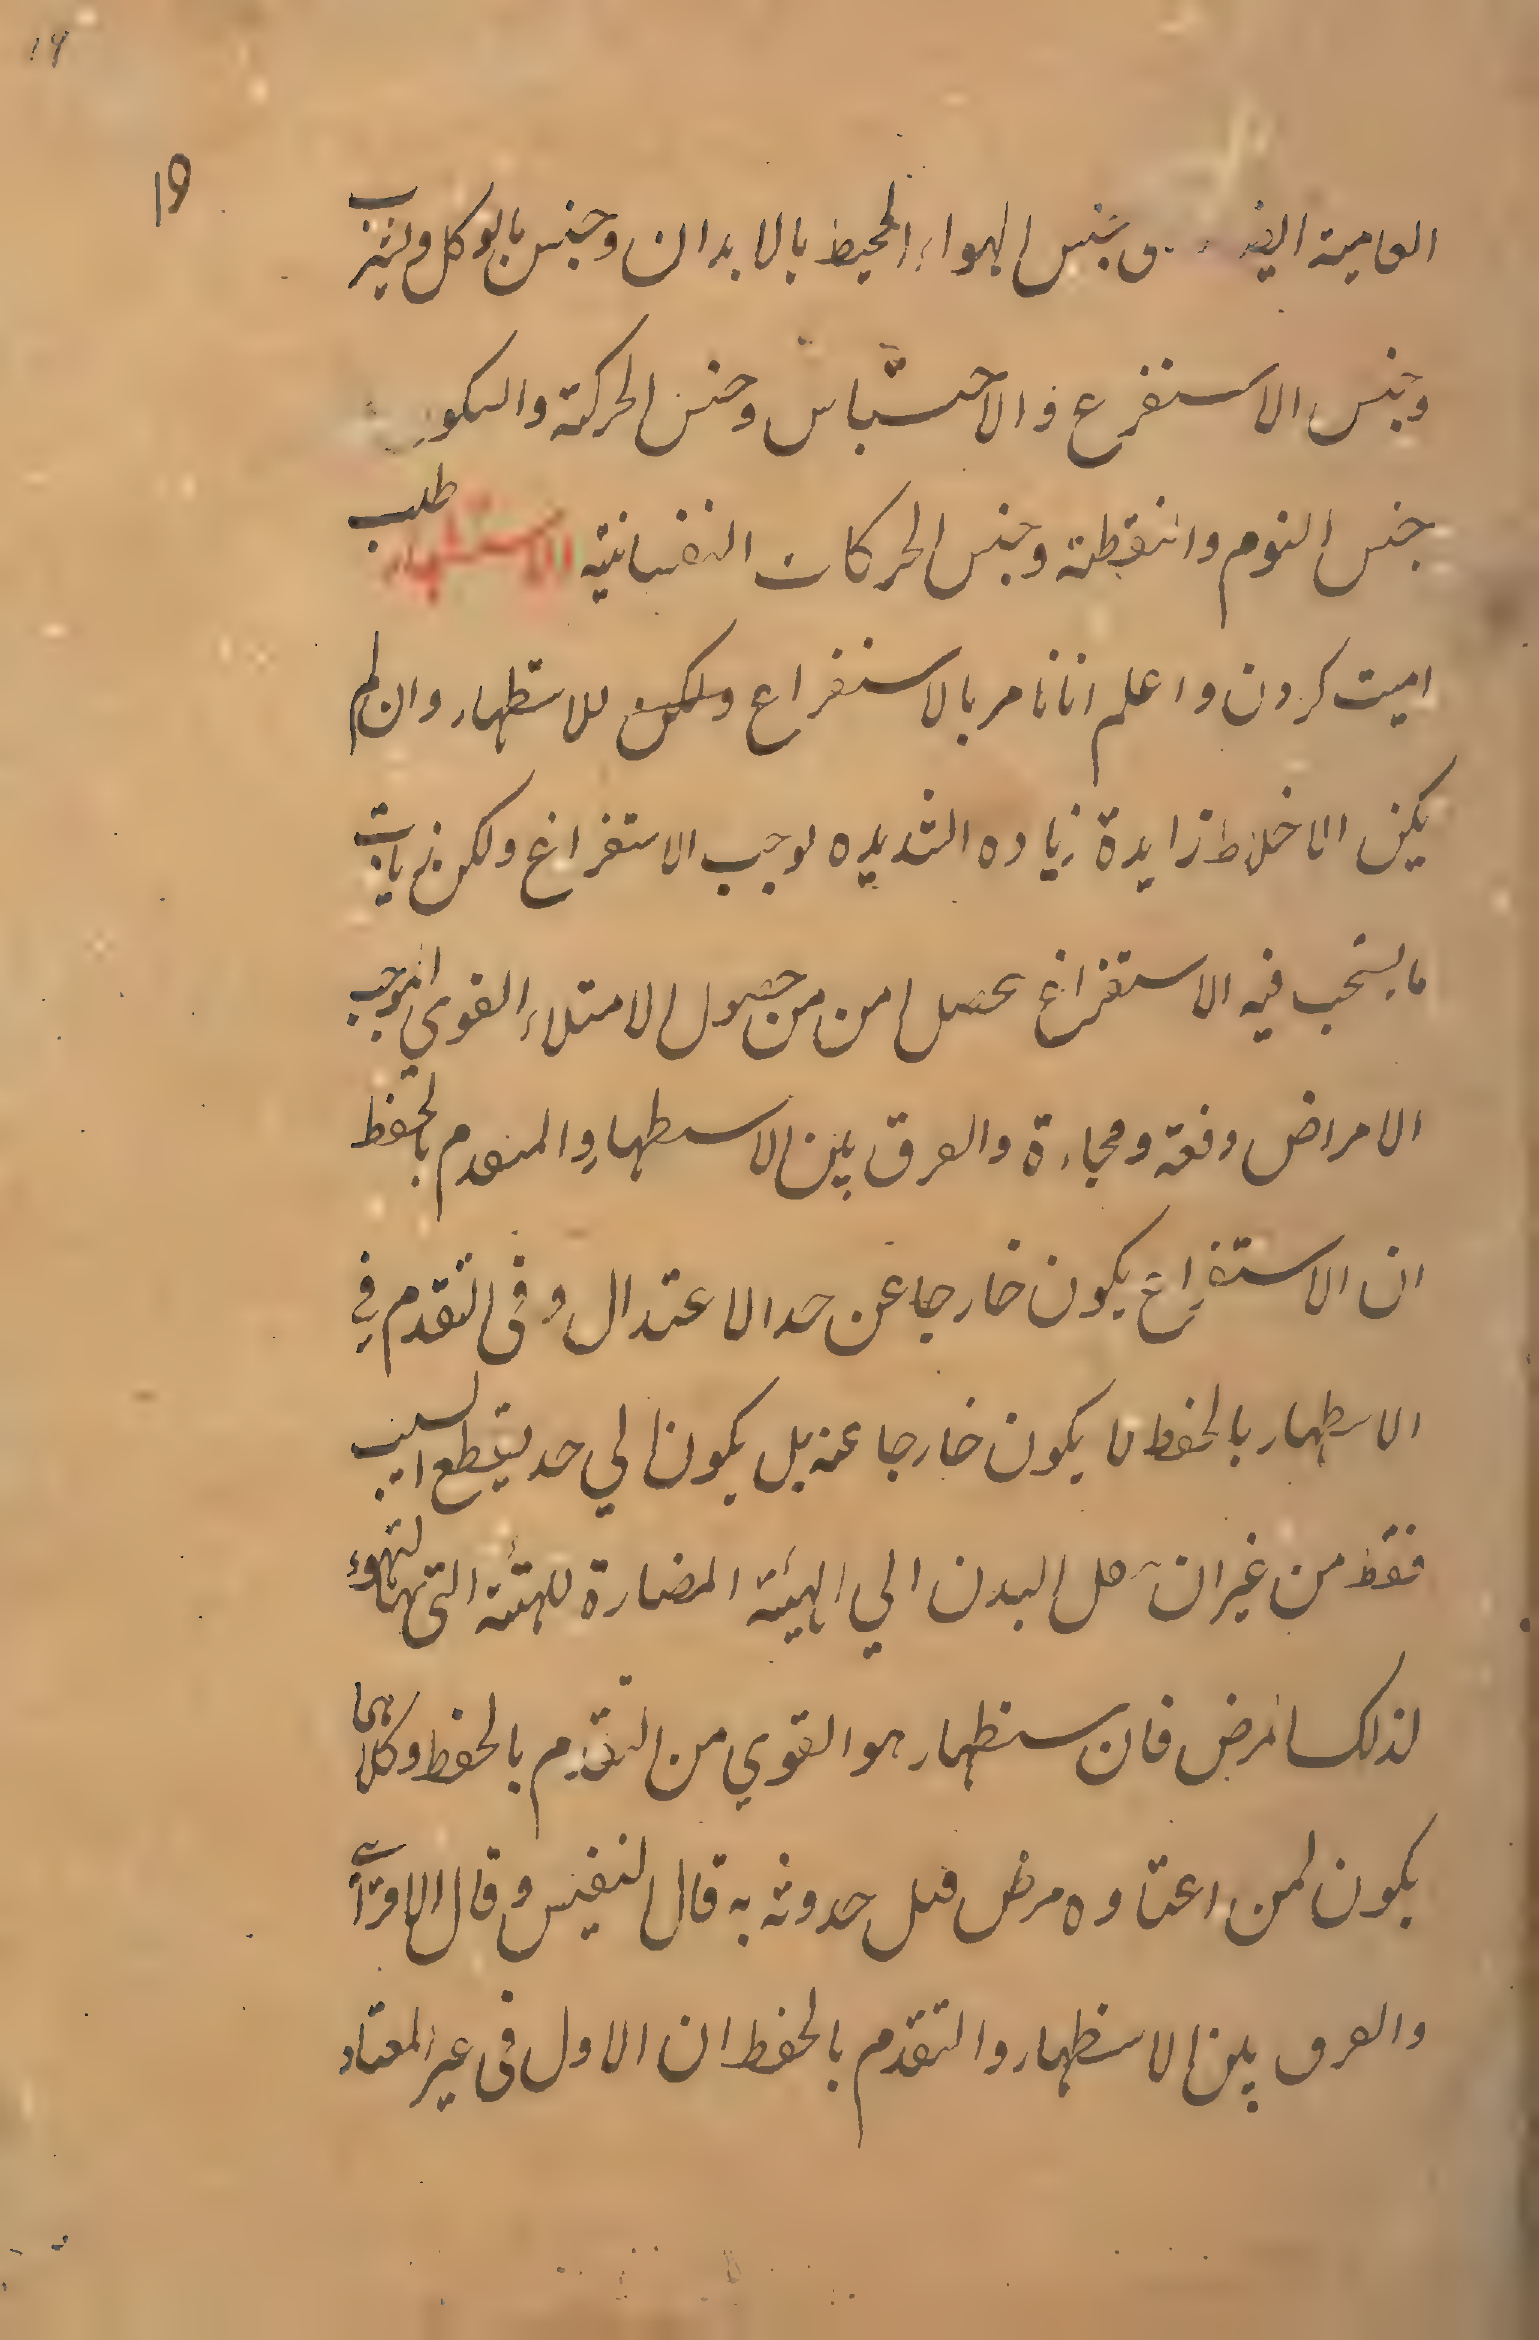 19
العامية الضـ ـى جنس الهواء المحيط بالابدان وجنس بالوكل ويشرب
وجنس الاستفرغ والاحتباس وجنس الحركة والسكون
جنس النوم وانقطة وجنس الحركات النفسانية الاستظهار طلب
اميت كردن واعلم انا نامر بالاستفراع ولكن للاستظهار وان لم
يكن الاخلاط زايدة زياده الشديده يوجب الاستفراغ ولكن زيات
ما يستحب فيه الاستقراغ يحصل امن من حصول الامتلاء القوي الموجب
الامراض دفعة ومجاءة والفرق بين الاسطهار والمتقدم بالحفظ
ان الاستفراغ يكون خارجا عن حد الاعتدال وفى التقدم في
الاسطهار بالحفظ لا يكون خارجا عنه بل يكون الي حد يقطع السبب
فقط من غير ان حل البدن الي الهيئة المضارة للهئية التى لتهاوء
لذلك المرض فان ستظهار هو القوي من التقدم بالحفظ وكلاهما
يكون لمن اعتاده مرض قبل حدوثه به قال لنفيس وقال الاقرائى
والفرق بين الاستظهار والتقدم بالحفظ ان الاول فى غير المعتاد